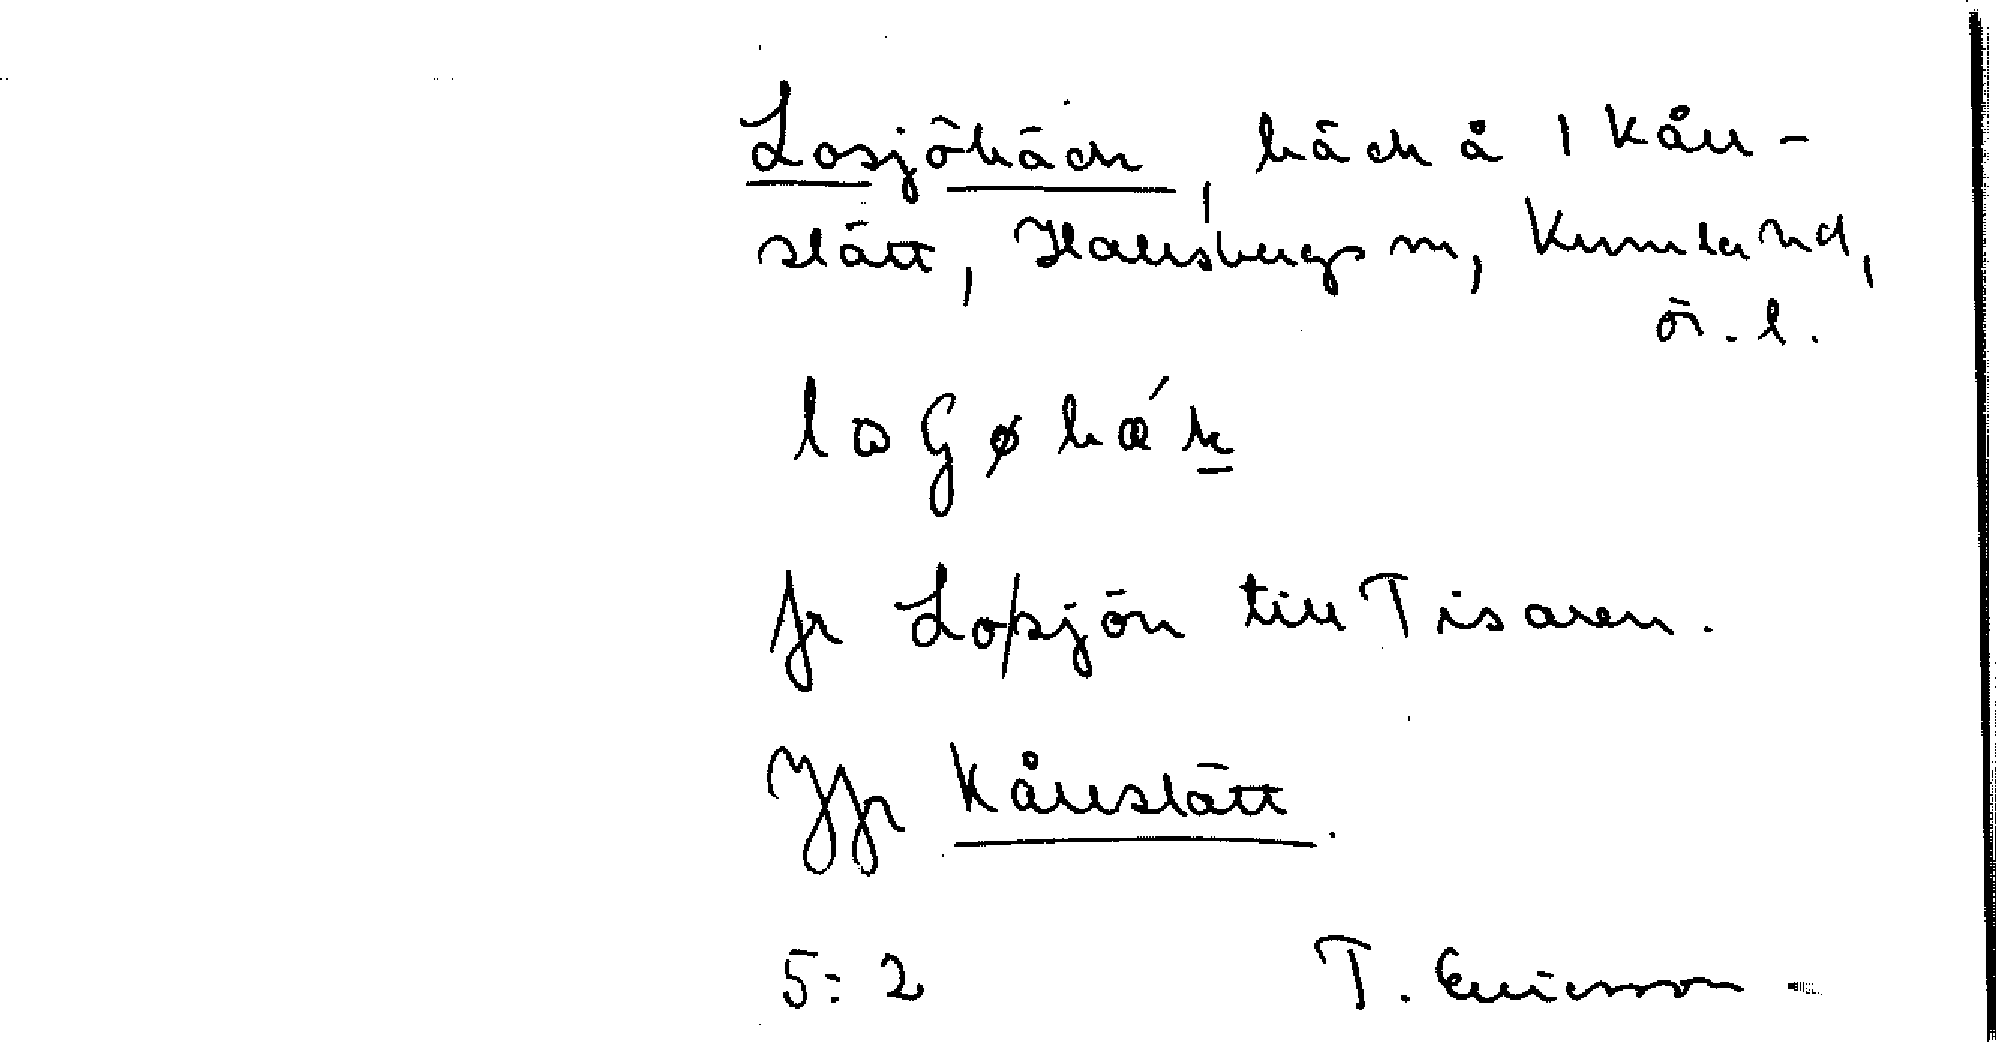 Losjöbäck, bäck å 1 Kåll-
slätt, Hallsbergs sn, Kumla hd,
ör. l.
fr Losjön till Tisaren.
Jfr Kållslätt.
5:2 T. Ericsson